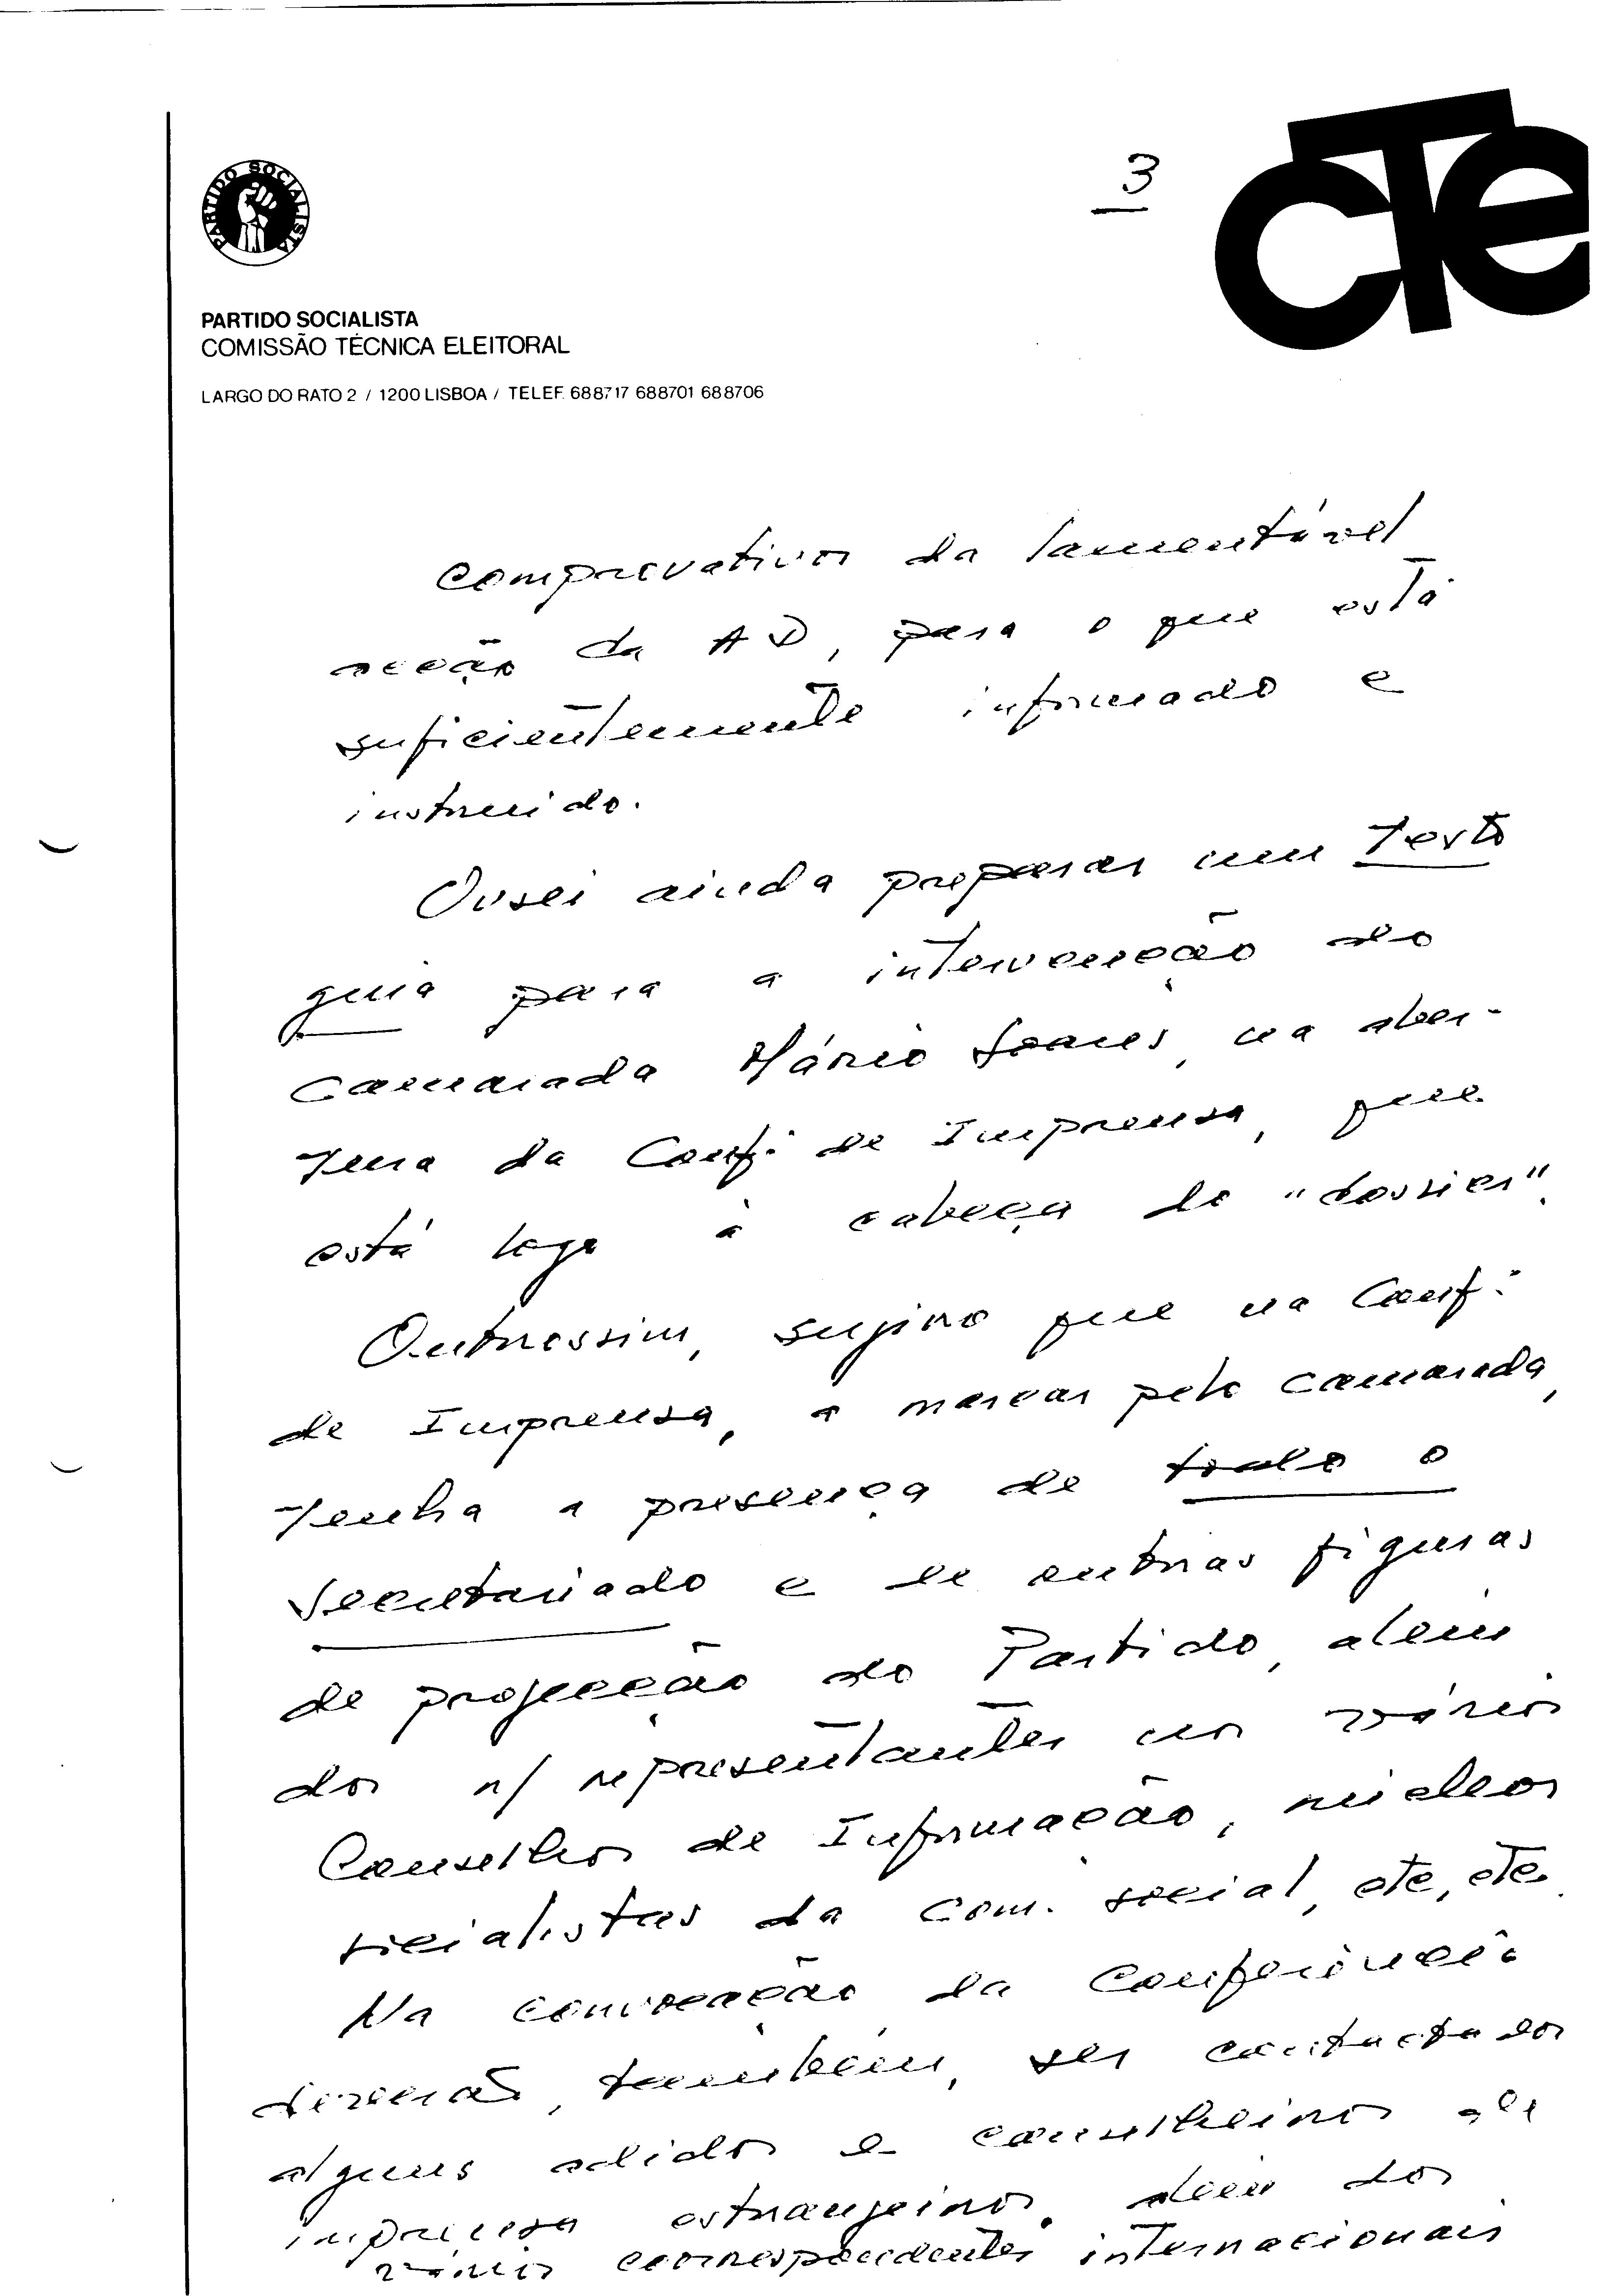 3
CTe
PARTIDO SOCIALISTA
PARTIDO SOCIALISTA
COMISSÃO TÉCNICA ELEITORAL
LARGO DO RATO 2 / 1200 LISBOA / TELEF. 688717 688701 688706
comprovativos da lamentável
acção da AD, para o que está
suficientemente informado e
instruido.
Ousei ainda preparar um texto
guia para a intervenção do
camarada Mário Soares, na aber-
tura da Conf: de Imprensa, que
está logo à cabeça do "dossier".
Outrossim, sugiro que na Conf:
de Imprensa, a marcar pelo camarada,
tenha a presença de todo o
Secretariado e de outras figuras
de projecção do Partido, além
dos n/ representantes nos vários
Conselhos de Informação, núcleos
socialistas da com. social, etc, etc.
Na convocação da Conferência
deverão, também, ser contactados
alguns adidos e conselheiros de
imprensa estrangeiros, além dos
vários correspondentes internacionais